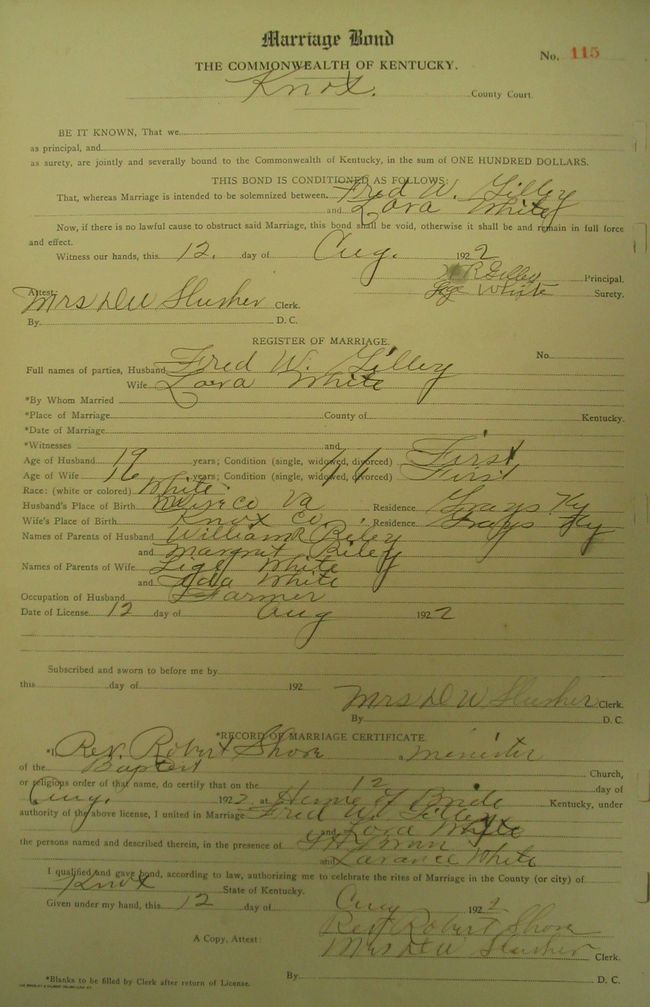 Marriage Bond
No. 115
THE COMMONWEALTH OF KENTUCKY.
Knox. County Court
BE IT KNOWN, That we
as principal, and
as surety, are jointly and severally bound to the Commonwealth of Kentucky, in the sum of ONE HUNDRED DOLLARS.
THIS BOND IS CONDITIONED AS FOLLOWS:
That, whereas Marriage is intended to be solemnized between Fred W. Gilley
and Lora White
Now, if there is no lawful cause to obstruct said Marriage, this bond shall be void, otherwise it shall be and remain in full force
and effect.
Witness our hands, this 12. day of Aug. 1922
W R Gilley Principal.
Attest: Lige White Surety.
Mrs D W Slusher Clerk.
By D. C.
REGISTER OF MARRIAGE.
No.
Full names of parties, Husband Fred W. Gilley
Wife Lora White
*By Whom Married
*Place of Marriage County of Kentucky.
*Date of Marriage
*Witnesses and
Age of Husband 19 years; Condition (single, widowed, divorced) First
Age of Wife 16 years; Condition (single, widowed, divorced) First
Race: (white or colored) White
Husband's Place of Birth Co Va Residence Grays Ky
Wife's Place of Birth Knox Co Residence Grays Ky
Names of Parents of Husband William R
and Margrut
Names of Parents of Wife Lige White
and White
Occupation of Husband Farmer
Date of License 12 day of Aug 1922
Subscribed and sworn to before me by
this day of 192
Mrs D W Slusher Clerk.
By D. C.
*RECORD OF MARRIAGE CERTIFICATE.
*I Rev. Robert Shore minister
of the Baptist Church,
or religious order of that name, do certify that on the 12 day of
Aug. 1922, at Home of Bride Kentucky, under
authority of the above license, I united in Marriage Fred W. Gilley
and Lora White
the persons named and described therein, in the presence of
and Larance White
I qualified and gave bond, according to law, authorizing me to celebrate the rites of Marriage in the County (or city) of
Knox State of Kentucky.
Given under my hand, this 12 day of Aug 1922
Rev. Robert Shore
A Copy, Attest: Mrs D W Slusher Clerk.
By D. C.
*Blanks to be filled by Clerk after return of License.